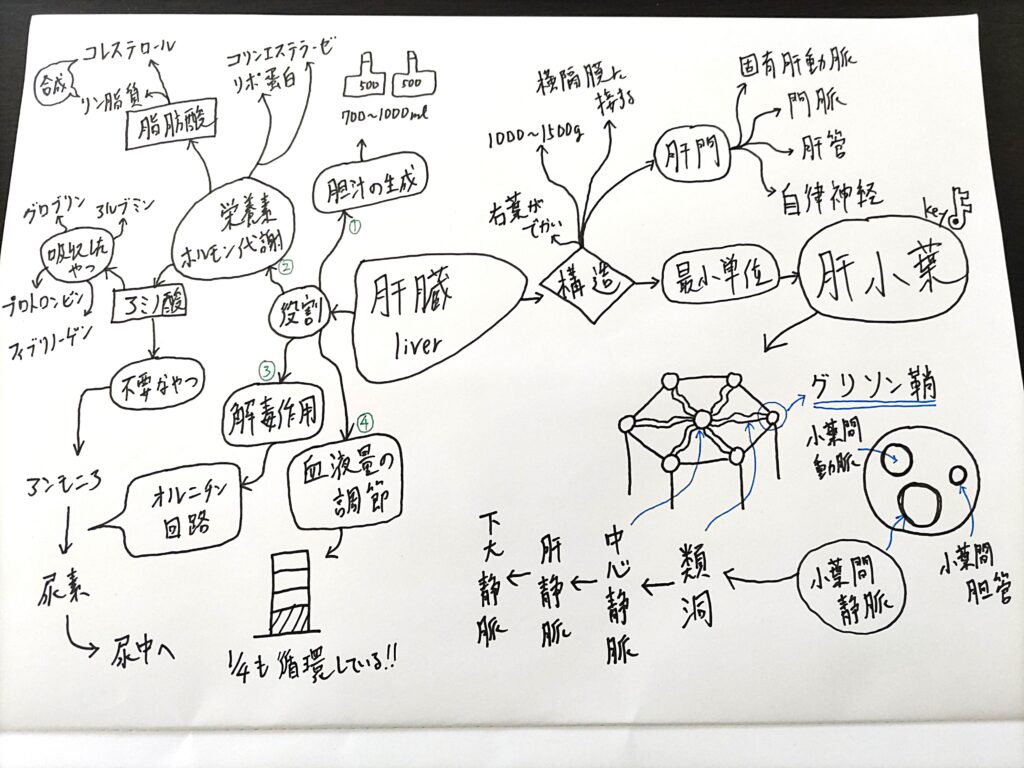 コレステロール
合成
リン脂質
脂肪酸
コリンエステラーゼ
リポ蛋白
500
500
700~1000ml
胆汁の生成
①
栄養素
ホルモン代謝
②
グロブリン
アルブミン
吸収したやつ
プロトロンビン
フィブリノーゲン
アミノ酸
不要なやつ
アンモニア
尿素
尿中へ
オルニチン
回路
役割
③
解毒作用
④
血液量の
調節
1/4も循環している!!
肝臓
liver
構造
右葉が
でかい
1000~1500g
横隔膜に
接する
肝門
固有肝動脈
門脈
肝管
自律神経
最小単位
肝小葉
key
グリソン鞘
小葉間
動脈
小葉間
胆管
小葉間
静脈
類洞
中心静脈
肝静脈
下大静脈